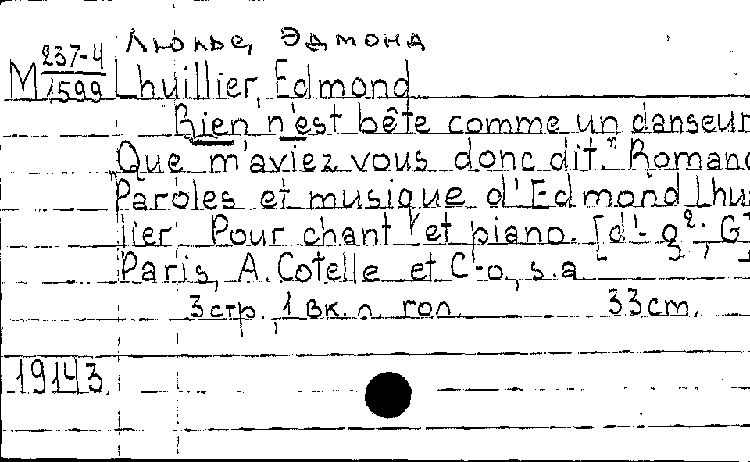 Люлье, Эдмонд
М 237-4/1599 Lhuillier, Edmond
Rien n'est bête comme un danseur
„Que m'aviez vous donc dit." Romanc
Paroles et musique d'Edmond Lhui
lier. Pour chant et piano. [d'- g²; G]
Paris, A. Cotelle et C-o, s.a
3 стр., 1 вк. л. гол. 33 cm.
19143.